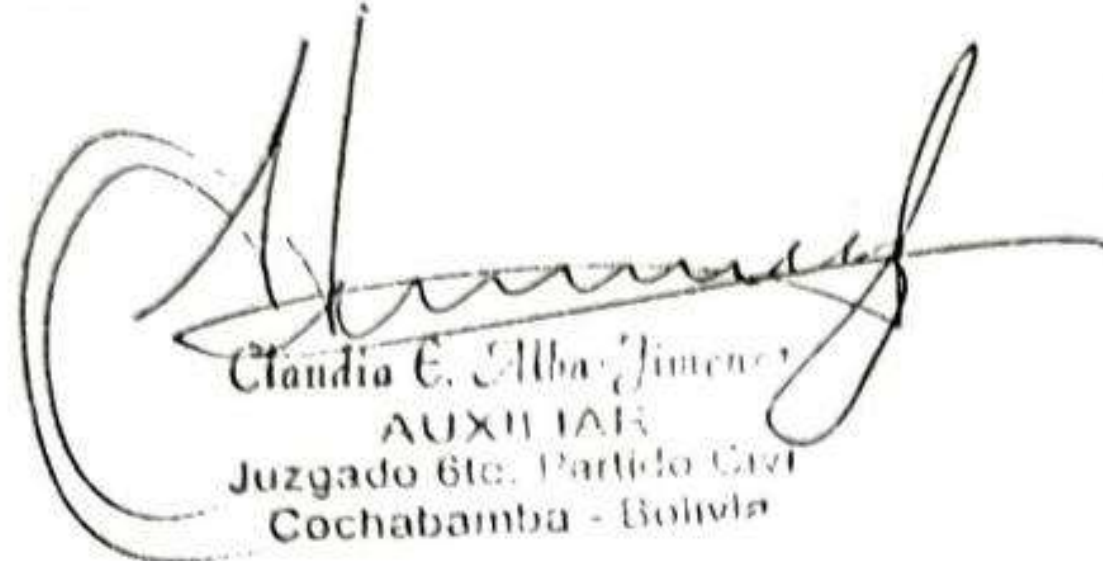 Claudia E. Alba Jimenez
AUXILIAR
Juzgado 6to. Partido Civil
Cochabamba - Bolivia